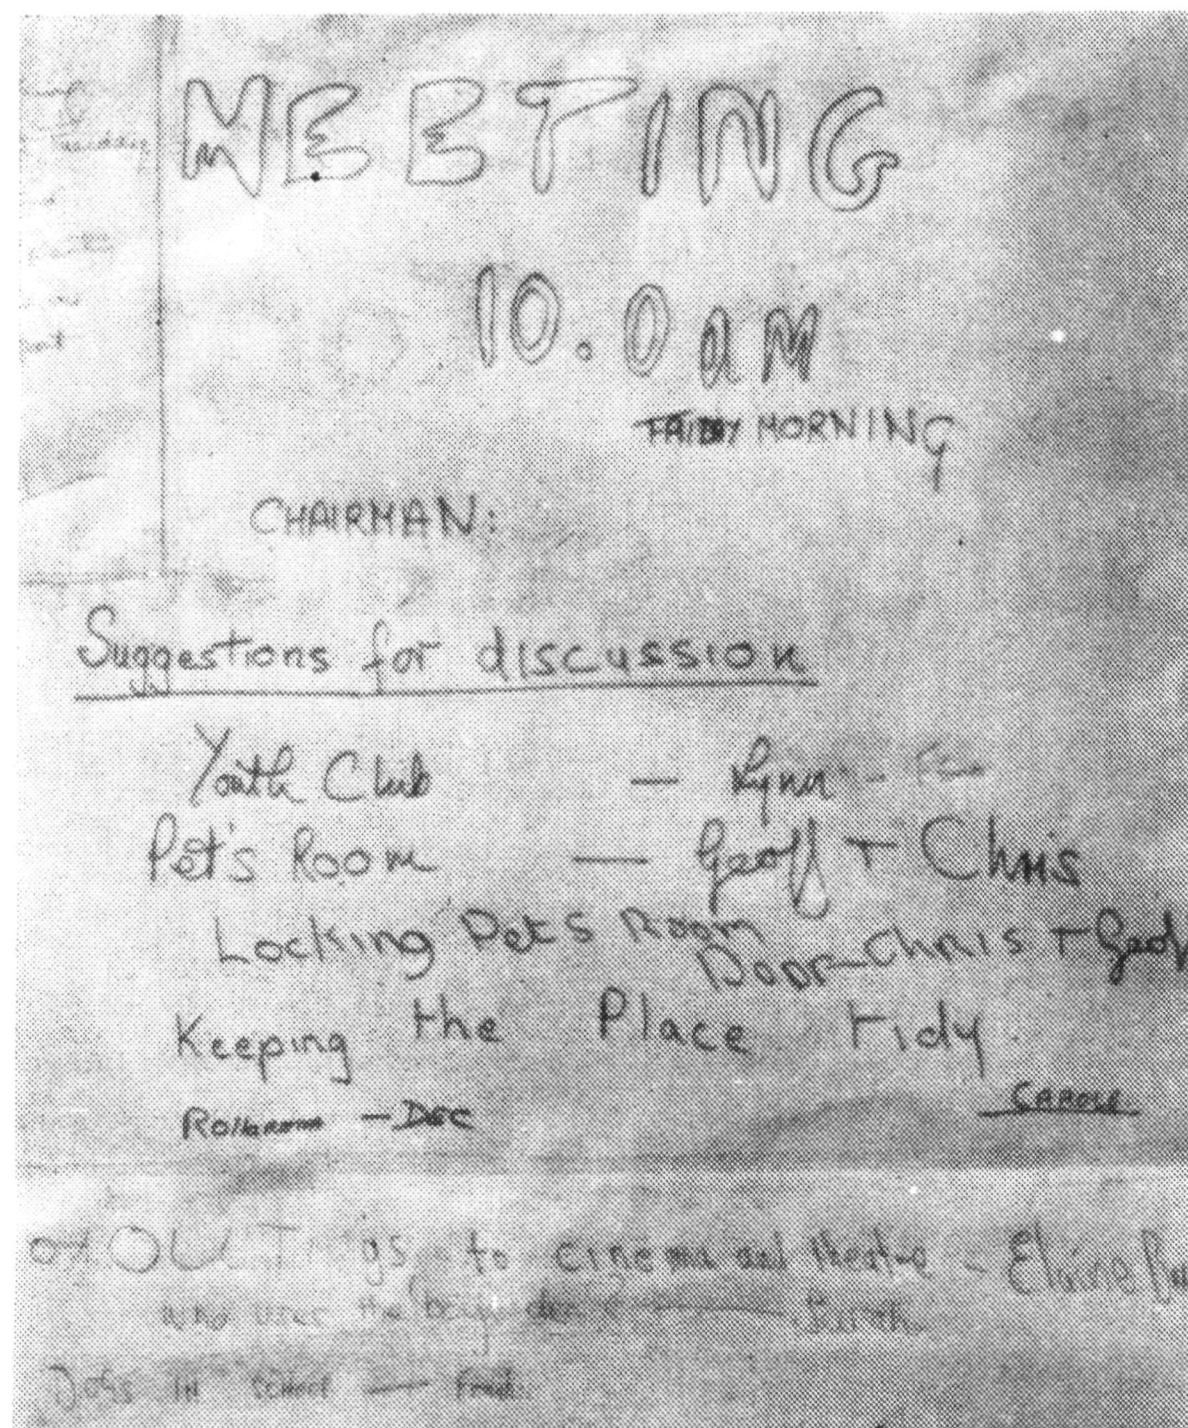 MEETING
10.0 aM
FRIDAY MORNING
CHAIRMAN:
Suggestions for discussion
Youth Club — Lynn -
Pet's Room — Geoff + Chris
Locking Pets Room
Door — Chris + Geof
Keeping the Place tidy.
— DEC CAROLE
OUTings to cinema and theatre - Elaine
who uses the
Dogs IN School — Frank